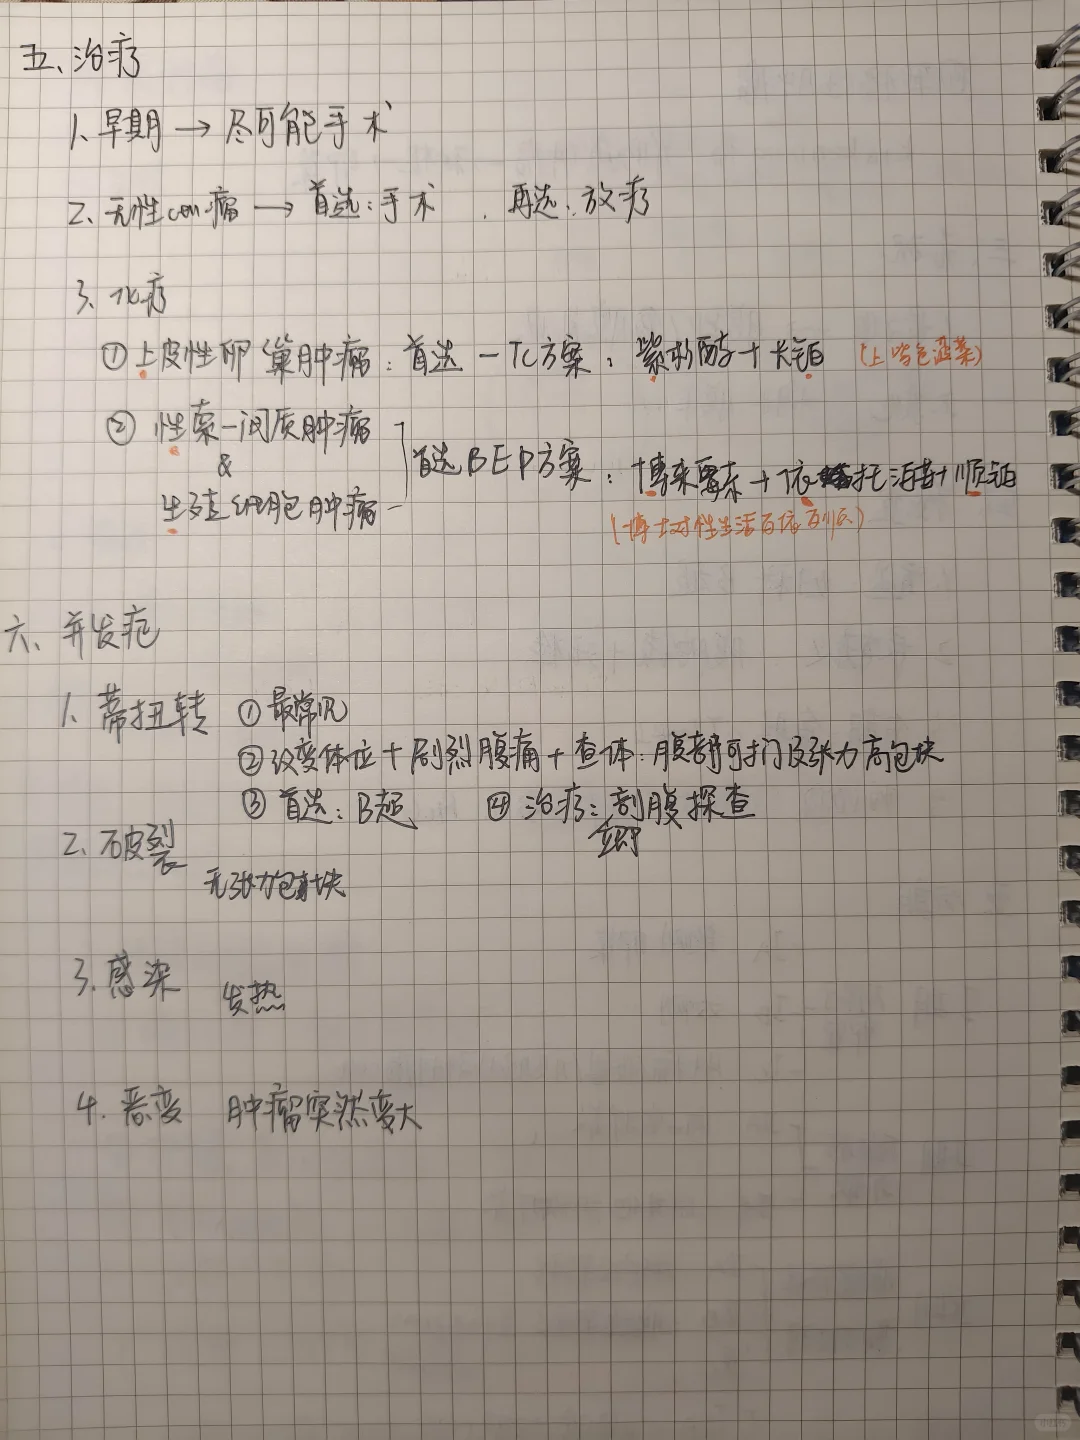 五、治疗
1、早期 → 尽可能手术
2、无性cell瘤 → 首选：手术 ，再选：放疗
3、化疗
①上皮性卵巢肿瘤：首选－TC方案：紫杉醇＋卡铂 (上紫色菠菜)
② 性索－间质肿瘤
&
生殖细胞肿瘤
首选BEP方案：博来霉素＋依托泊苷＋顺铂
(博士对性生活百依百顺)
六、并发症
1、蒂扭转 ①最常见
②改变体位＋剧烈腹痛＋查体：腹部可扪及张力高包块
③ 首选：B超 ④ 治疗：剖腹探查
立即
2、破裂
无张力包块
3、感染 发热
4、恶变 肿瘤突然变大